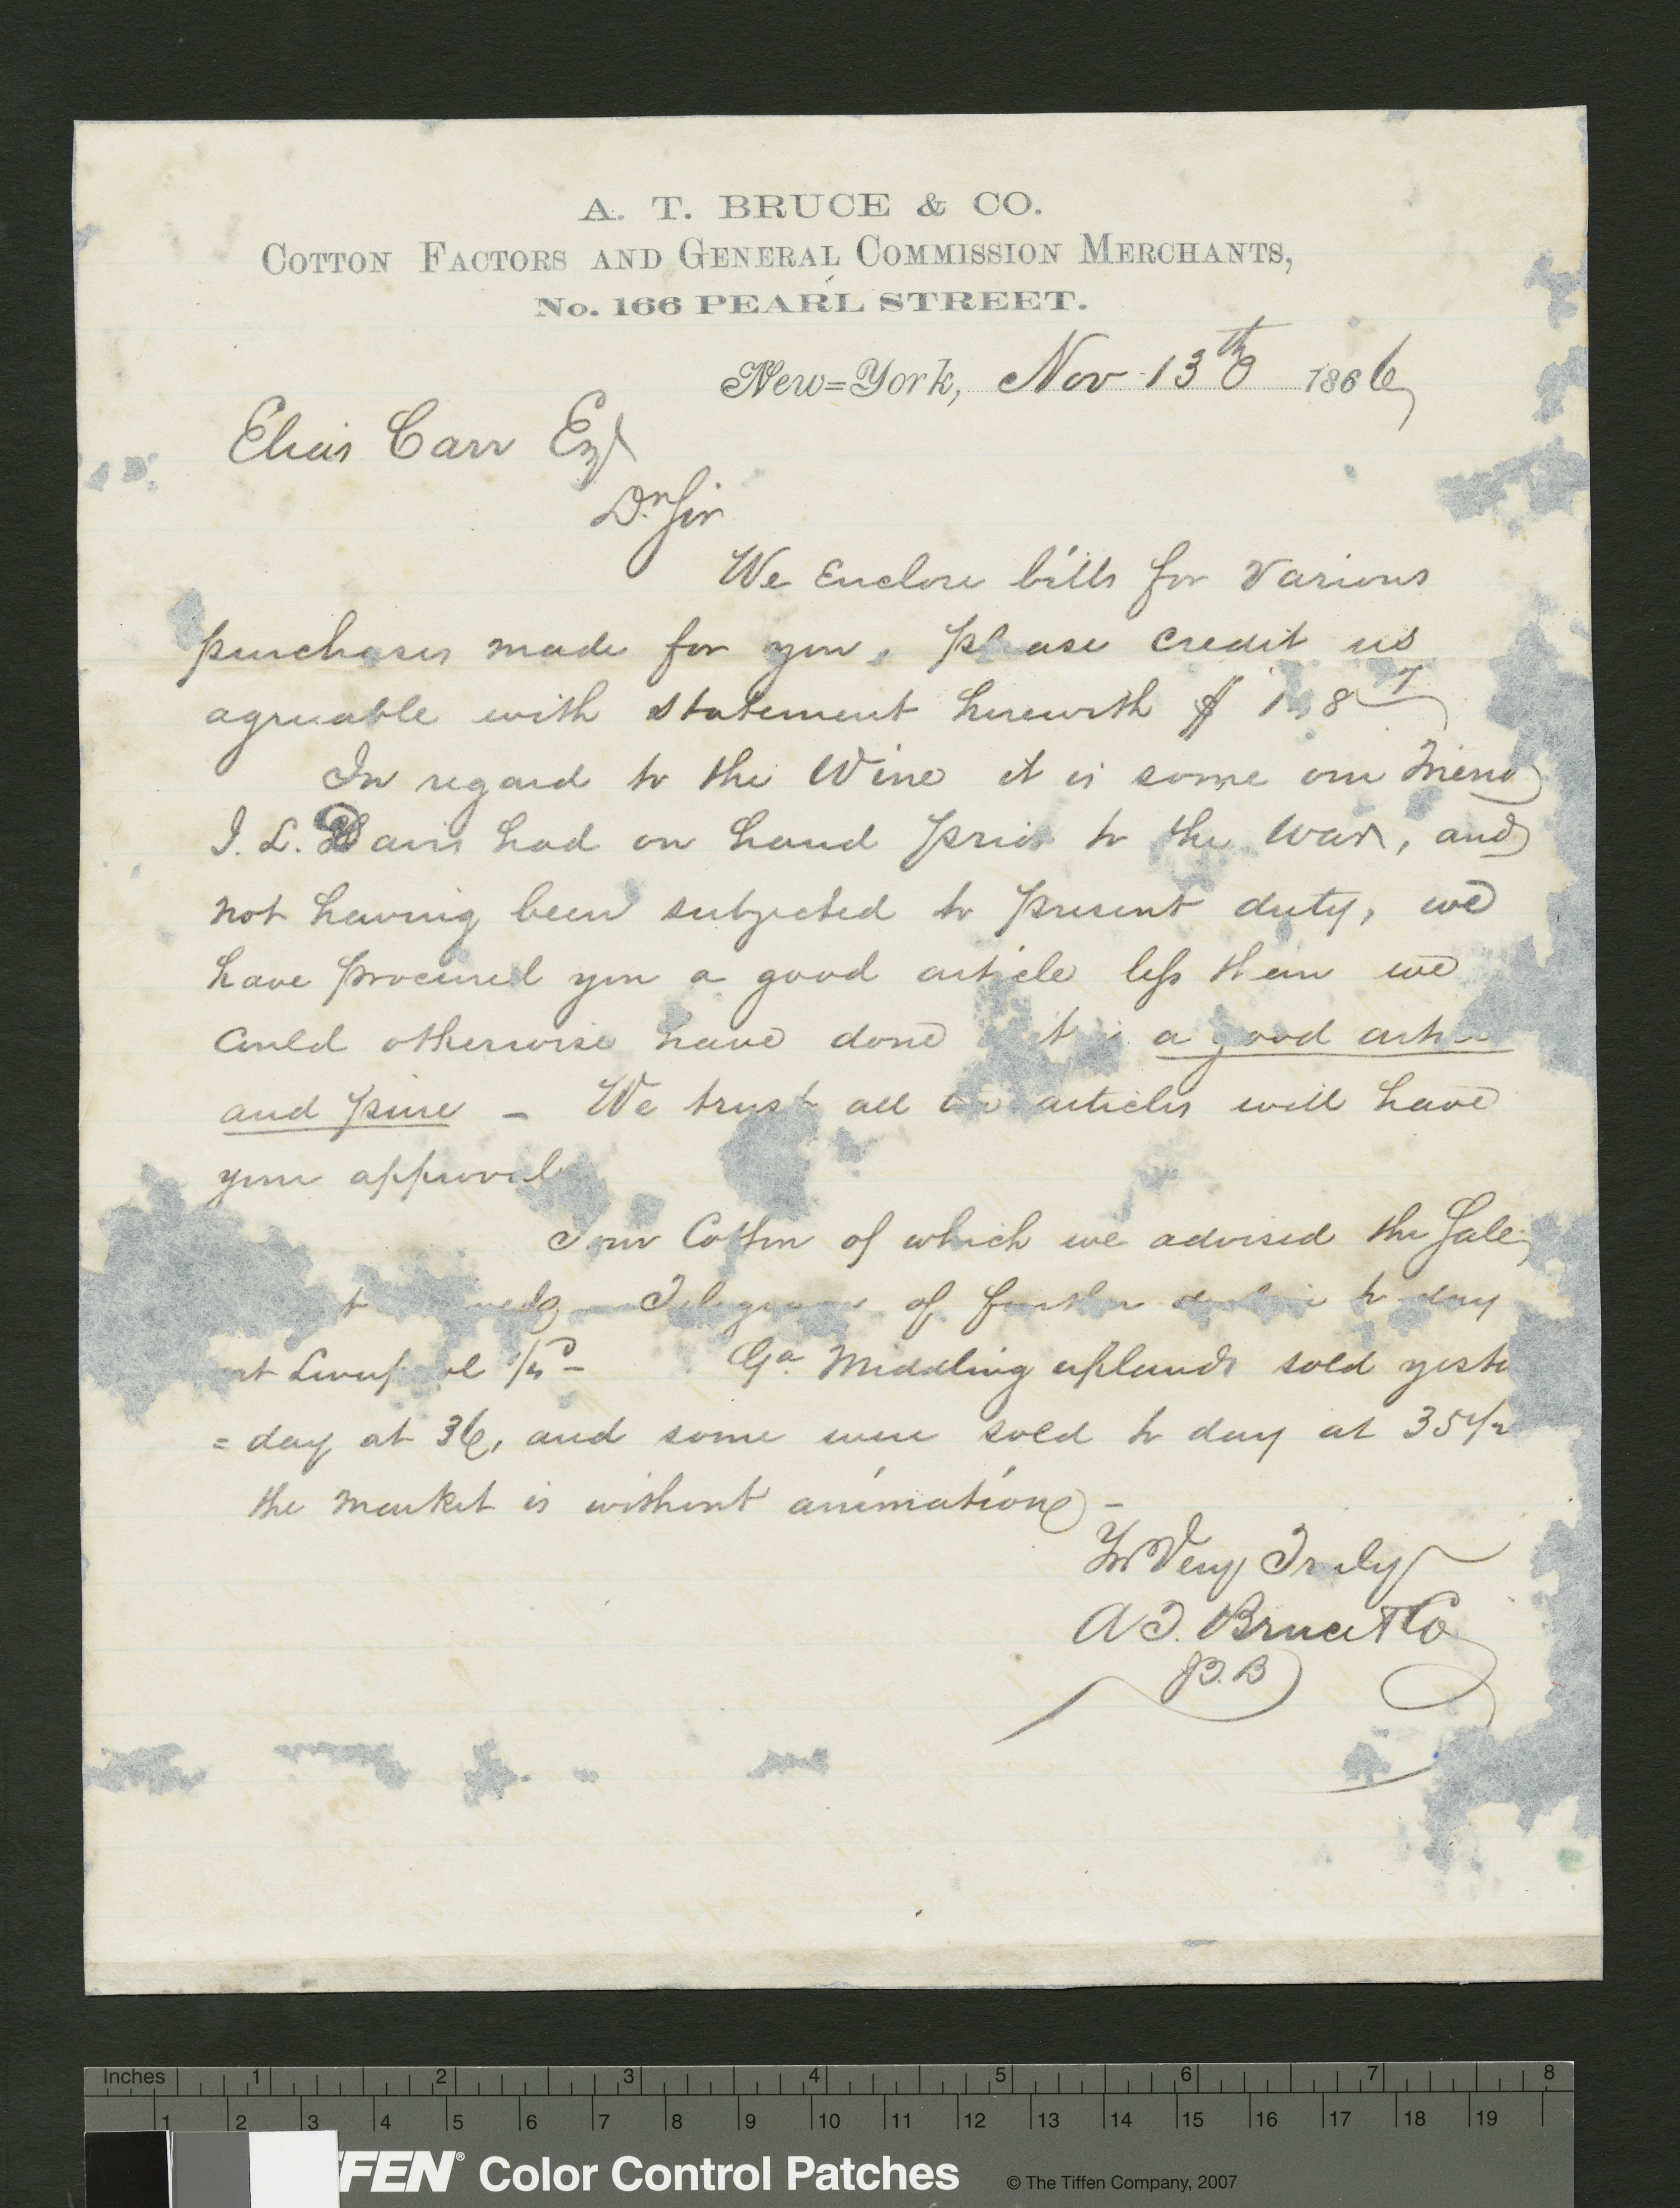 A. T. BRUCE & CO.
COTTON FACTORS AND GENERAL COMMISSION MERCHANTS,
No. 166 PEARL STREET.
New=York, Nov 13th 1866
Elias Carr Esq
Dr Sir
We Enclose bills for Various
purchases made for you. Please Credit us
agreeable with statement herewith $
In regard to the Wine it is some our Friend
J. L. Davis had on hand prior to the War, and
not having been subjected to present duty, we
have procured you a good article less than we
could otherwise have done it is a good article
and pure – We trust all the articles will have
your approval
Your Cotton of which we advised the Sale
Telegrams of further decline to day
at Liverpool Ga. Middling uplands sold yester
=day at 36, and some were sold to day at 35 1/2
the market is without animation –
Yr Very Truly
A T. Bruce & Co
B
Inches 1 2 3 4 5 6 7 8
1 2 3 4 5 6 7 8 9 10 11 12 13 14 15 16 17 18 19
FFEN® Color Control Patches © The Tiffen Company, 2007